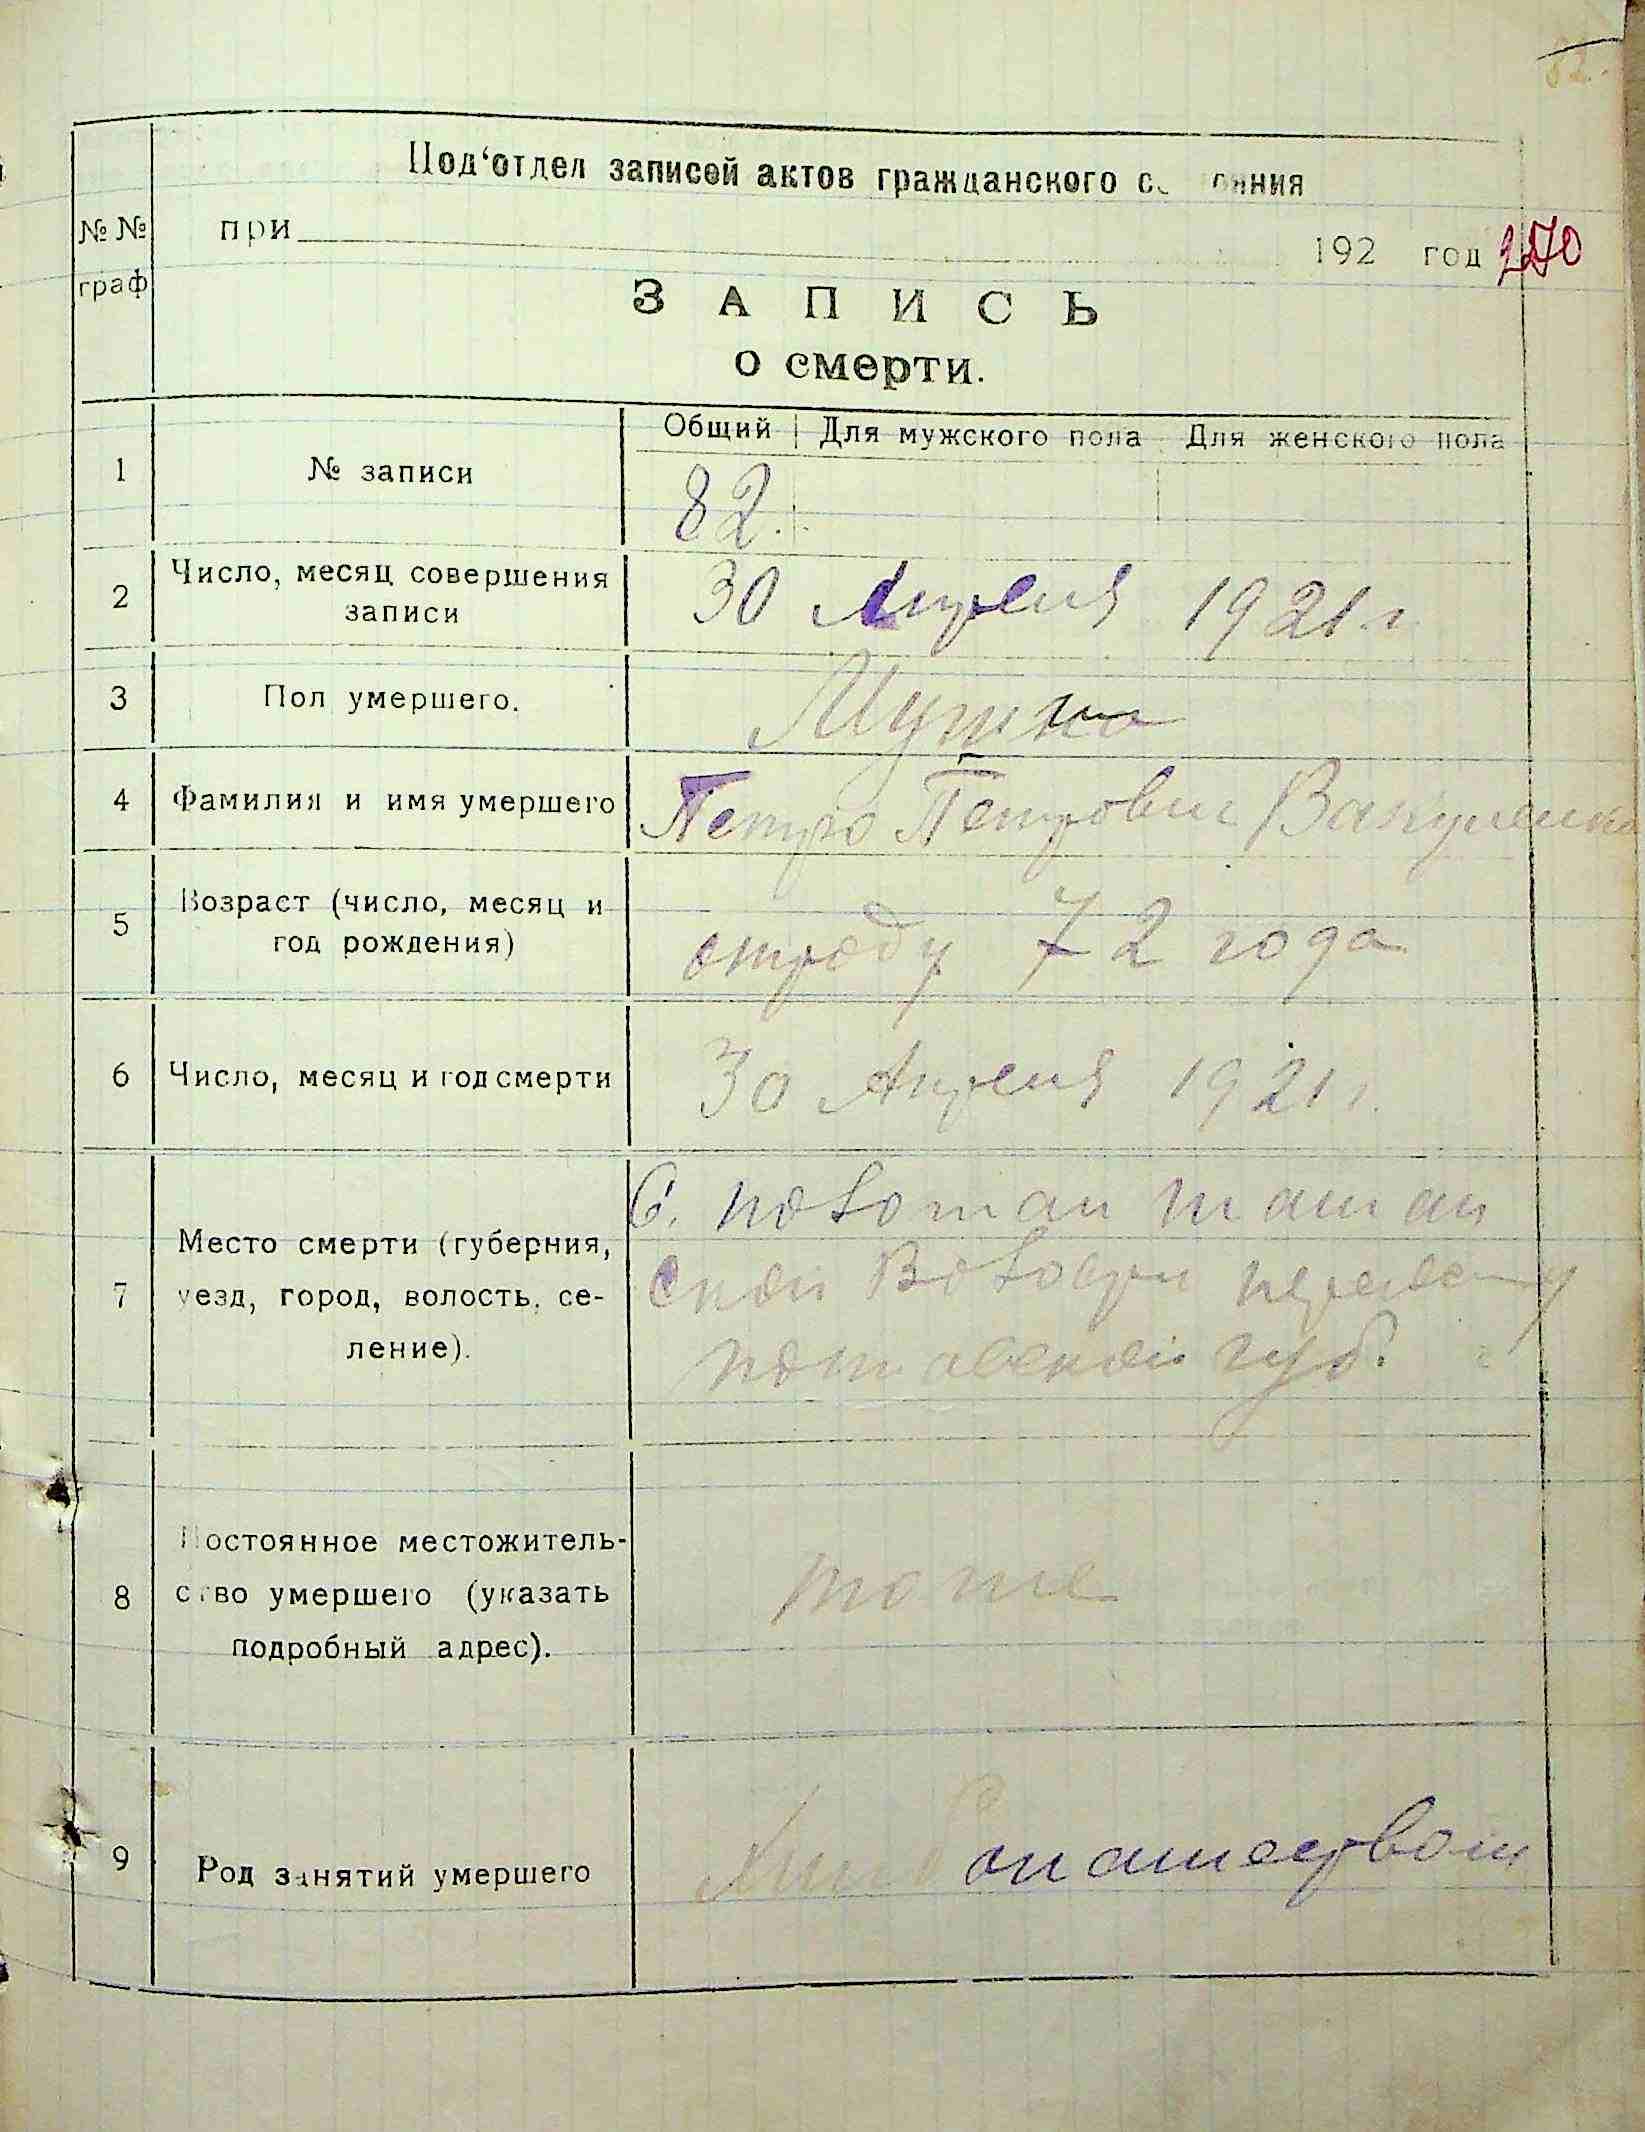 82.
Под‘отдел записей актов гражданского
при 192 год 270
№ № граф
ЗАПИСЬ
о смерти.
1 № записи Общий Для мужского пола Для женского пола
82.
2 Число, месяц совершения записи 30 Апреля 1921 г.
3 Пол умершего. Мужка
4 Фамилия и имя умершего Петро Петрович Вакуленко
5 Возраст (число, месяц и год рождения) отроду 72 года
6 Число, месяц и год смерти 30 Апреля 1921 г.
7 Место смерти (губерния, уезд, город, волость, се-
ление).
С.
ской
губ.
8 Постоянное местожитель-
ство умершего (указать
подробный адрес).
тоже
9 Род занятий умершего